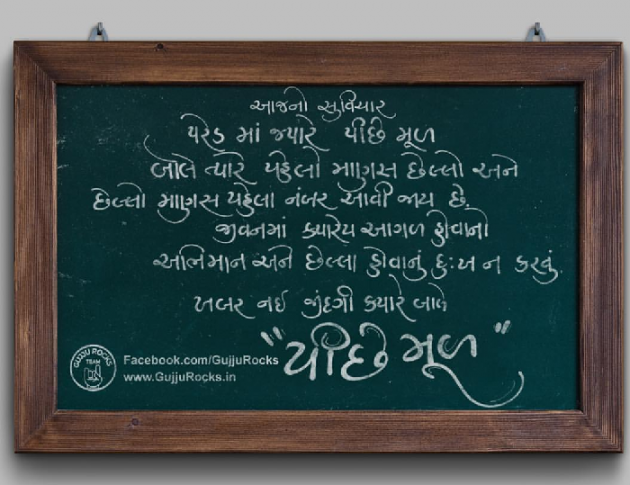 આજનો સુવિચાર
પરેડ માં જ્યારે પીછે મૂળ
બોલે ત્યારે પહેલો માણસ છેલ્લો અને
છેલ્લો માણસ પહેલા નંબર આવી જાય છે.
જીવનમાં ક્યારેય આગળ હોવાનો
અભિમાન અને છેલ્લા હોવાનું દુઃખ ન કરવું.
ખબર નઈ જીંદગી ક્યારે બોલે
"પીછે મૂળ"
GUJJU ROCKS
TEAM
Facebook.com/GujjuRocks
www.GujjuRocks.in